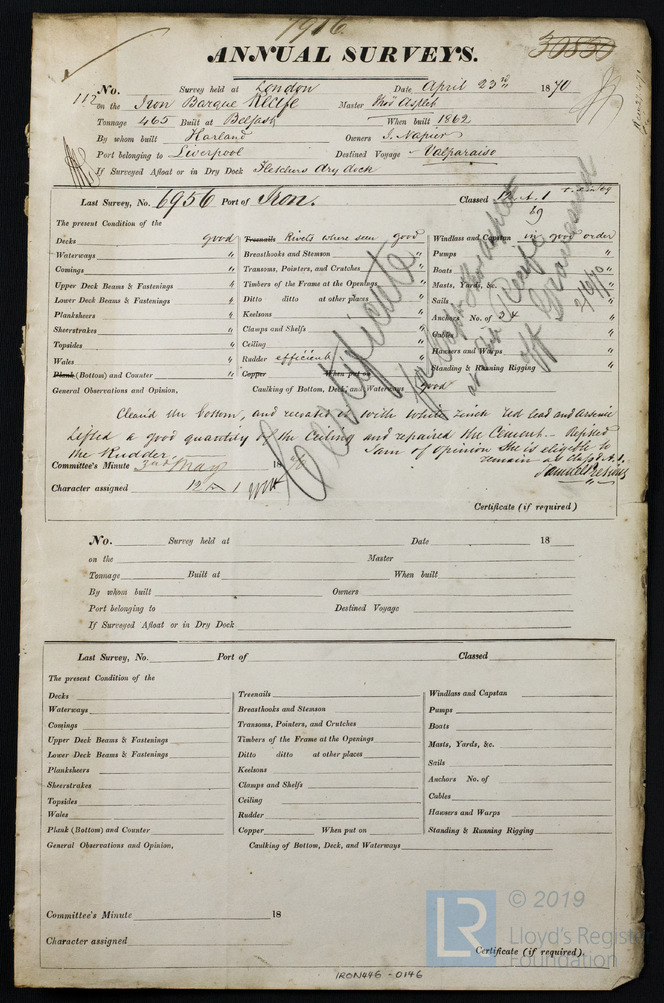 7916
ANNUAL SURVEYS.
30830
No. 112 Survey held at London Date April 23rd 1870
on the Iron Barque Recife Master
Tonnage 465 Built at Belfast When built 1862
By whom built Harland Owners J. Napier
Port belonging to Liverpool Destined Voyage Valparaiso
If Surveyed Afloat or in Dry Dock Fletchers dry dock
Last Survey, No. 6956 Port of Iron. Classed 12 A. 1
The present Condition of the
Decks good
Waterways "
Comings "
Upper Deck Beams & Fastenings "
Lower Deck Beams & Fastenings "
Planksheers "
Sheerstrakes "
Topsides "
Wales "
Plank (Bottom) and Counter "
Treenails Rivets where seen good
Breasthooks and Stemson "
Transoms, Pointers, and Crutches "
Timbers of the Frame at the Openings "
Ditto ditto at other places "
Keelsons "
Clamps and Shelfs "
Ceiling "
Rudder efficient "
Copper When put on
Windlass and Capstan in good order
Pumps "
Boats "
Masts, Yards, &c. "
Sails "
Anchors No. of "
Cables "
Hawsers and Warps "
Standing & Running Rigging "
General Observations and Opinion, Caulking of Bottom, Deck, and Waterways good
Clean'd the bottom, and recoated it with white zinck red lead and Arsenic
Lifted a good quantity of the Ceiling and repaired the Cement. Refitted
the Rudder. I am of opinion she is eligible to
remain as class'd A. 1.
Committee's Minute 3rd May 1870
Character assigned 12 A 1
Certificate
off Gravesend
Certificate (if required)
No. Survey held at Date 18
on the Master
Tonnage Built at When built
By whom built Owners
Port belonging to Destined Voyage
If Surveyed Afloat or in Dry Dock
Last Survey, No. Port of Classed
The present Condition of the
Decks
Waterways
Comings
Upper Deck Beams & Fastenings
Lower Deck Beams & Fastenings
Planksheers
Sheerstrakes
Topsides
Wales
Plank (Bottom) and Counter
Treenails
Breasthooks and Stemson
Transoms, Pointers, and Crutches
Timbers of the Frame at the Openings
Ditto ditto at other places
Keelsons
Clamps and Shelfs
Ceiling
Rudder
Copper When put on
Windlass and Capstan
Pumps
Boats
Masts, Yards, &c.
Sails
Anchors No. of
Cables
Hawsers and Warps
Standing & Running Rigging
General Observations and Opinion, Caulking of Bottom, Deck, and Waterways
Committee's Minute 18
Character assigned
Certificate (if required).
LR © 2019
Lloyd's Register
Foundation
IRON446-0146